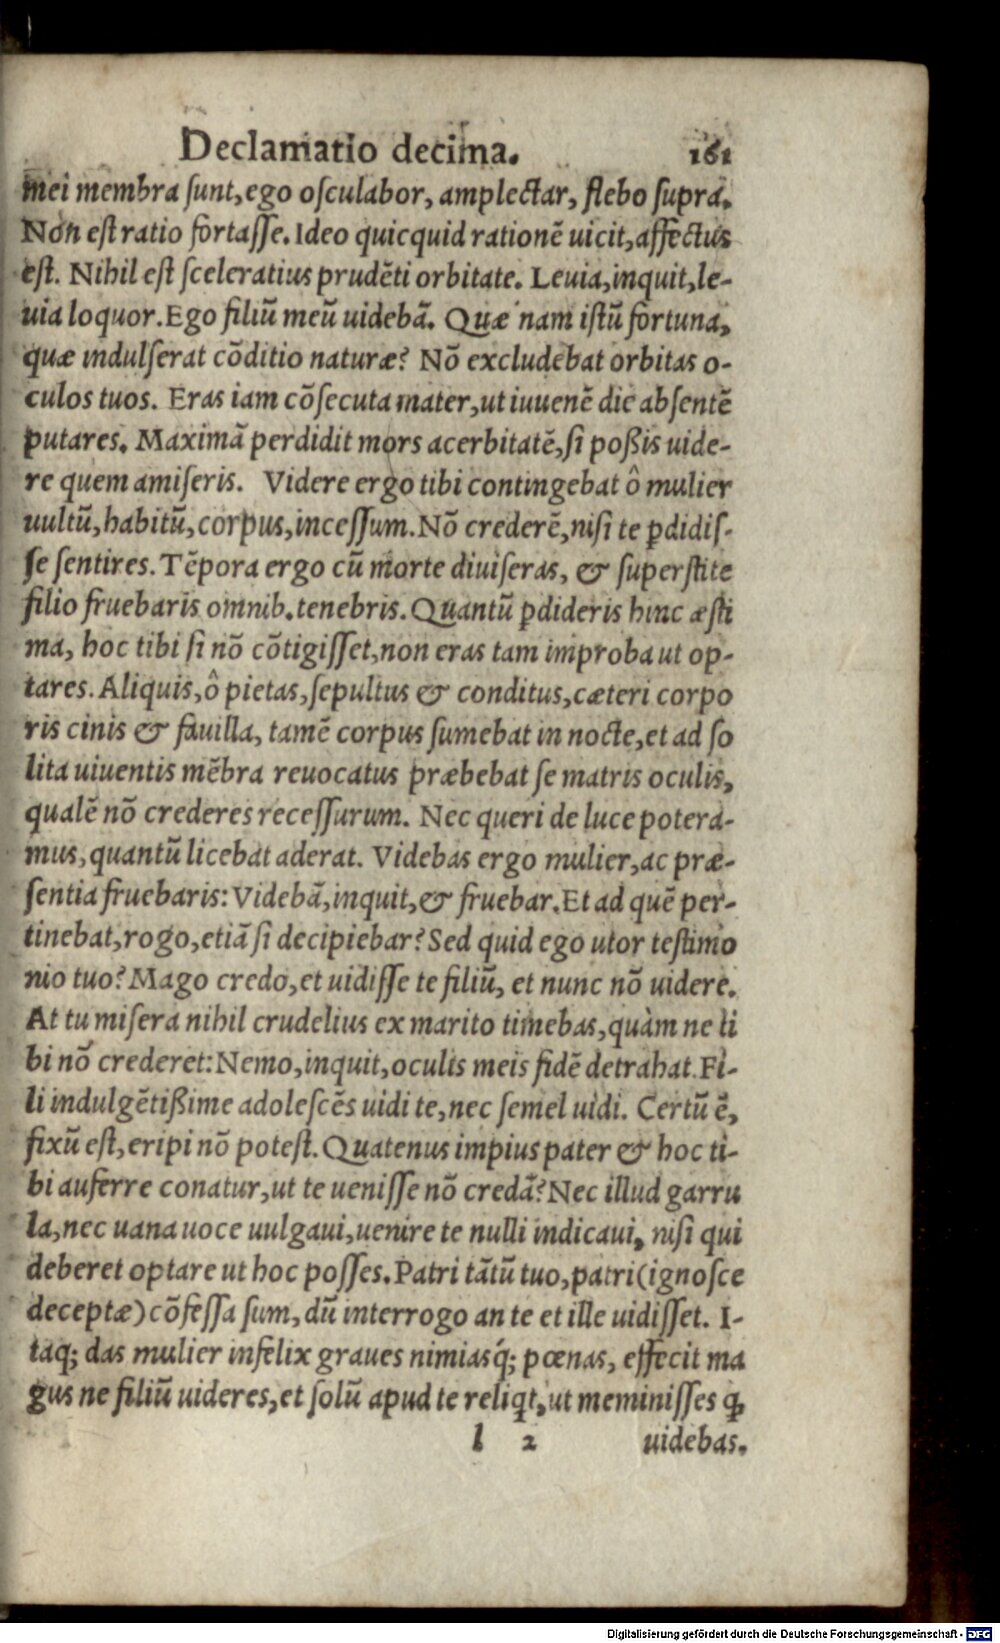 Declamatio decima. 161
mei membra ſunt, ego oſculabor, amplectar, flebo ſupra.
Non eſt ratio fortaſſe. Ideo quicquid rationē uicit, affectus
eſt. Nihil eſt ſceleratius prudēti orbitate. Leuia, inquit, le-
uia loquor. Ego filiū meū uidebā. Quæ nam iſtū fortuna,
quæ indulſerat cōditio naturæ? Nō excludebat orbitas o-
culos tuos. Eras iam cōſecuta mater, ut iuuenē die abſentē
putares. Maximā perdidit mors acerbitatē, ſi poßis uide-
re quem amiſeris. Videre ergo tibi contingebat ô mulier
uultū, habitū, corpus, inceſſum. Nō crederē, niſi te ꝑdidiſ-
ſe ſentires. Tēpora ergo cū morte diuiſeras, & ſuperſtite
filio fruebaris omnib. tenebris. Quantū ꝑdideris hinc æſti
ma, hoc tibi ſi nō cōtigiſſet, non eras tam improba ut op-
tares. Aliquis, ô pietas, ſepultus & conditus, cæteri corpo
ris cinis & fauilla, tamē corpus ſumebat in nocte, et ad ſo
lita uiuentis mēbra reuocatus præbebat ſe matris oculis,
qualē nō crederes receſſurum. Nec queri de luce potera-
mus, quantū licebat aderat. Videbas ergo mulier, ac præ-
ſentia fruebaris: Videbā, inquit, & fruebar. Et ad quē per-
tinebat, rogo, etiā ſi decipiebar? Sed quid ego utor teſtimo
nio tuo? Mago credo, et uidiſſe te filiū, et nunc nō uidere.
At tu miſera nihil crudelius ex marito timebas, quàm ne ti
bi nō crederet: Nemo, inquit, oculis meis fidē detrahat. Fi-
li indulgētißime adoleſcēs uidi te, nec ſemel uidi. Certū ē,
fixū eſt, eripi nō poteſt. Quatenus impius pater & hoc ti-
bi auferre conatur, ut te ueniſſe nō credā? Nec illud garru
la, nec uana uoce uulgaui, uenire te nulli indicaui, niſi qui
deberet optare ut hoc poſſes. Patri tātū tuo, patri (ignoſce
deceptæ) cōfeſſa ſum, dū interrogo an te et ille uidiſſet. I-
taq; das mulier infelix graues nimiasq́; pœnas, effecit ma
gus ne filiū uideres, et ſolū apud te reliqt, ut meminiſſes ꝙ
l 2 uidebas.
Digitalisierung gefördert durch die Deutsche Forschungsgemeinschaft - DFG